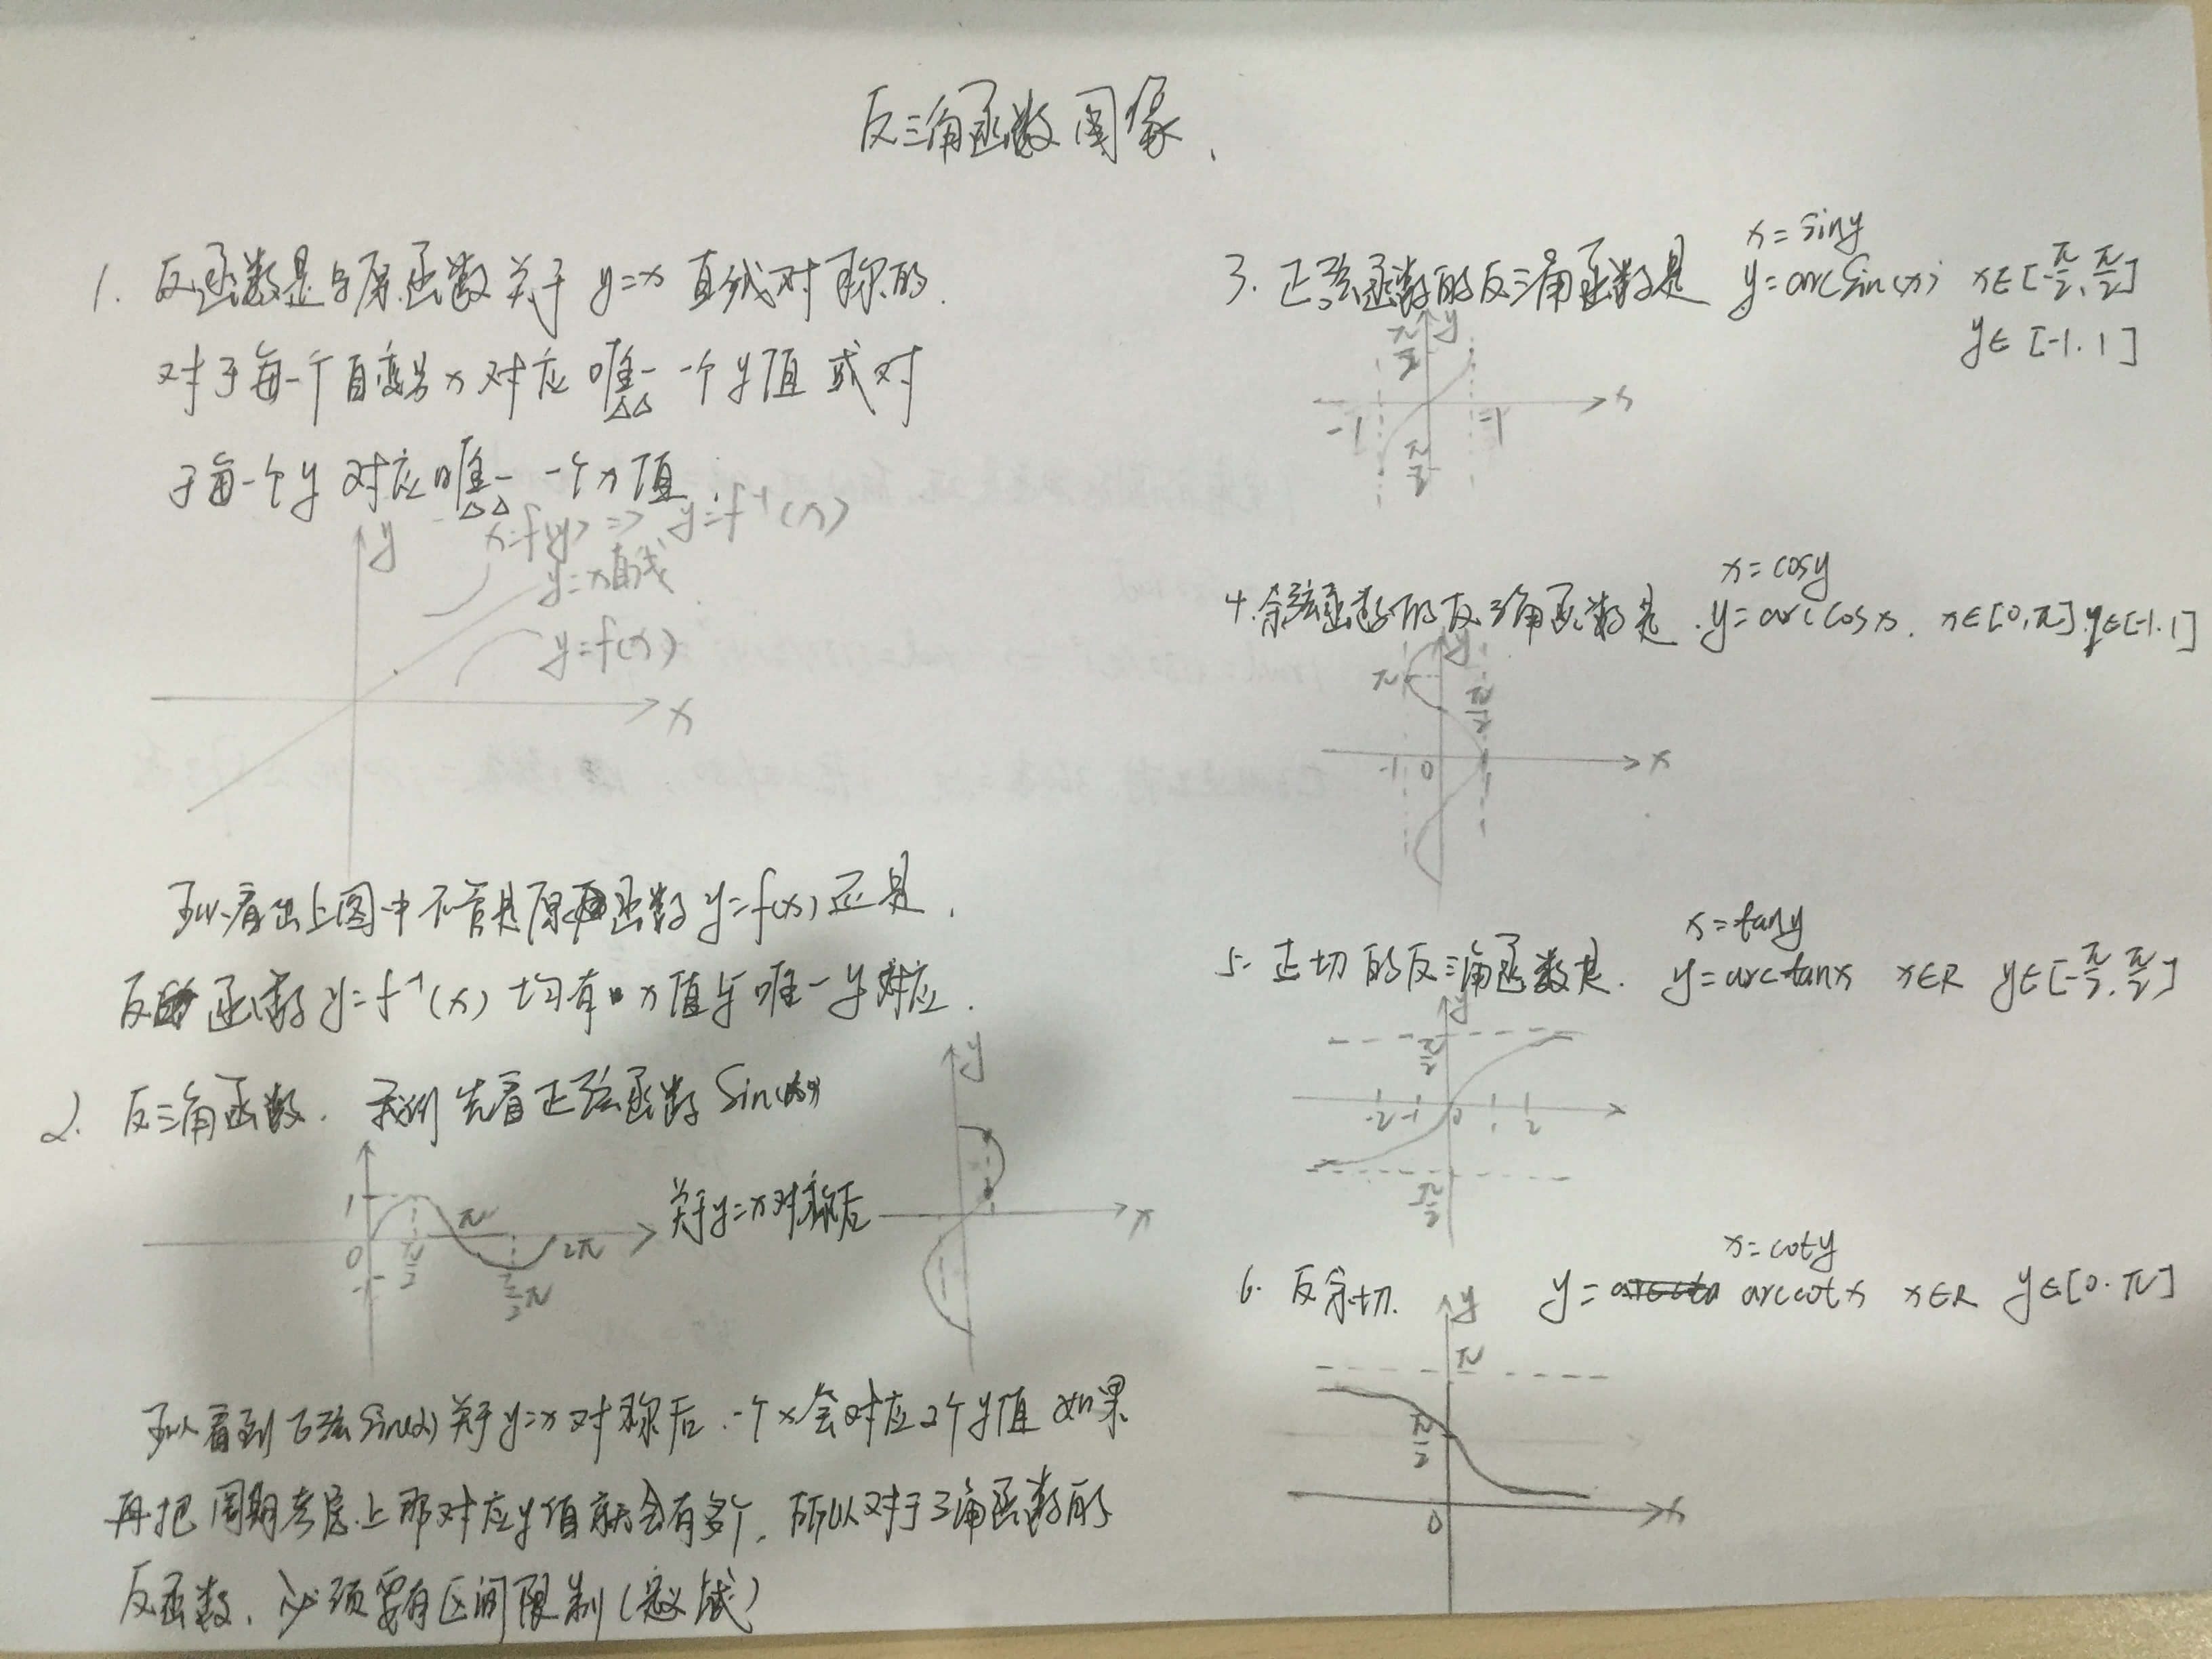 反三角函数图象.
1. 反函数是与原函数关于 y=x 直线对称的.
对于每一个自变量 x 对应 唯一 一个 y值 或对
于每一个 y 对应唯一 一个 x 值
y
x=f(y) => y=f⁻¹(x)
y=x直线
y=f(x)
x
可以看出上图中不管是原函数 y=f(x) 还是.
反函数 y=f⁻¹(x) 均有 x 值与唯一 y 对应.
2. 反三角函数. 我们先看正弦函数 Sin(x)
1
0
-1
π/2
π
3/2π
2π
关于y=x对称后
y
x
可以看到正弦Sin(x)关于y=x对称后.一个x会对应2个y值 如果
再把周期考虑上那对应y值就会有多个. 所以对于三角函数的
反函数. 必须要有区间限制(定义域)
x=siny
3. 正弦函数的反三角函数是 y=arcSin(x) x∈[-π/2, π/2]
y∈[-1.1]
y
π/2
x
-1
-1
π/2
x=cosy
4.余弦函数的反三角函数是.y=arccosx. x∈[0,π] y∈[-1.1]
y
π
π/2
-1 0 1
x
x=tany
5. 正切的反三角函数是. y=arctanx x∈R y∈[-π/2, π/2]
y
π/2
-2 -1 0 1 2
π/2
x=coty
6. 反余切. y= arccotx x∈R y∈[0.π]
y
π
π/2
0
x